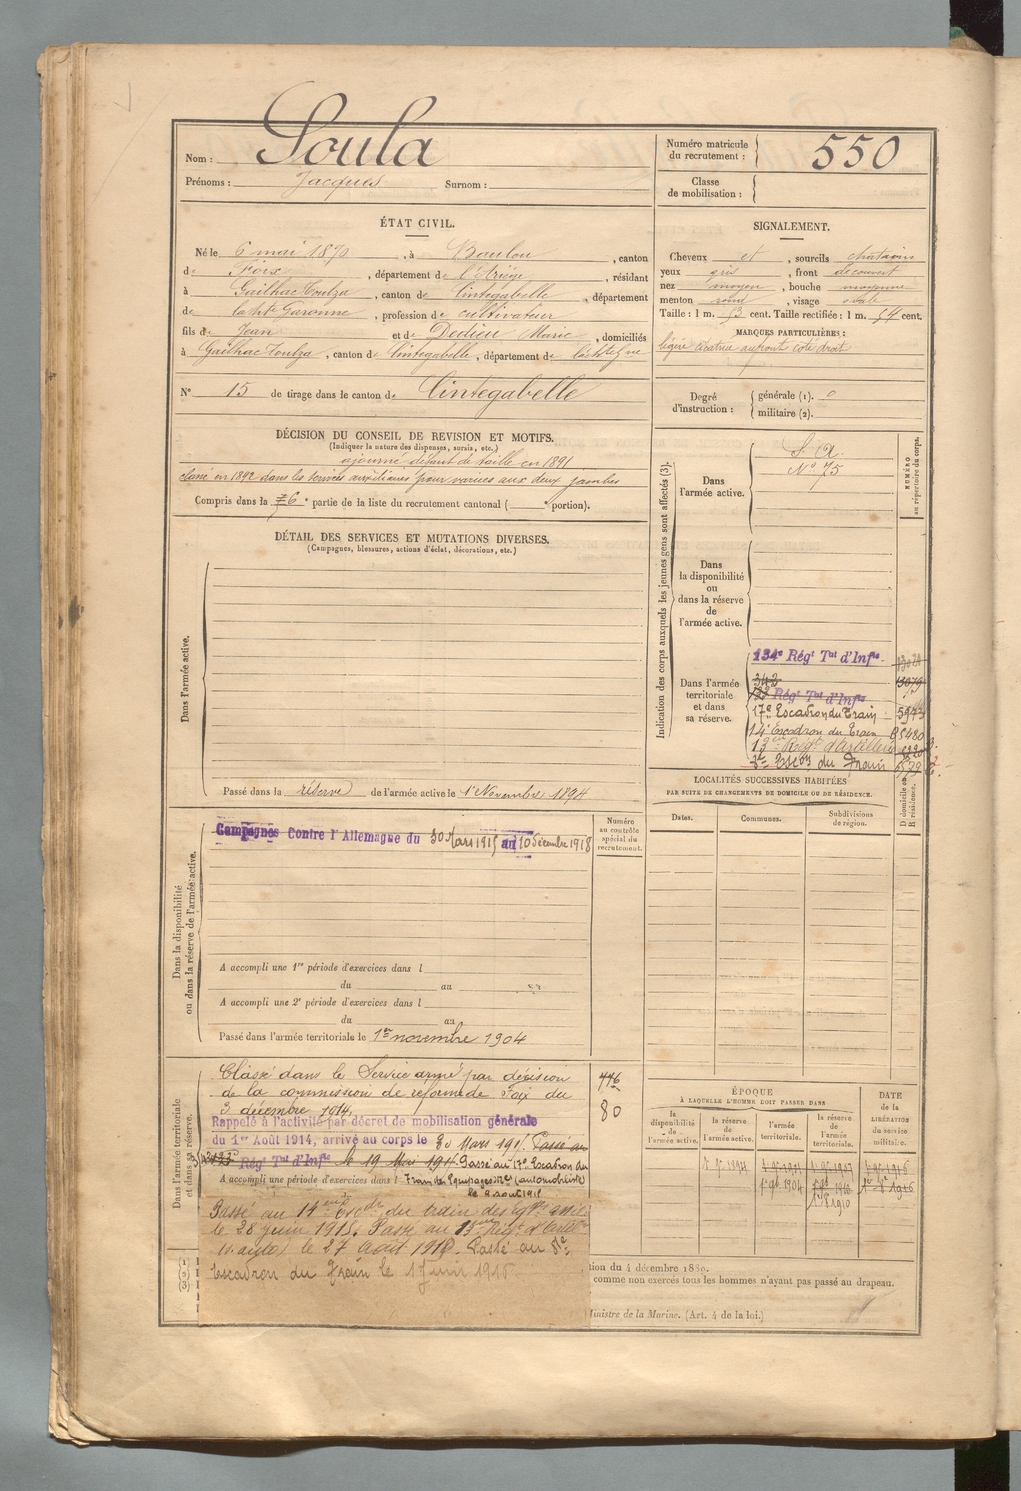 Nom : Soula
Prénoms : Jacques Surnom :
Numéro matricule du recrutement : 550
Classe de mobilisation :
ÉTAT CIVIL.
Né le 6 mai 1870, à Baulou, canton
de Foix, département de l'Ariège, résidant
à Gailhac Toulza, canton de Cintegabelle, département
de la Hte Garonne, profession de cultivateur
fils de Jean et de Dedieu Marie, domiciliés
à Gailhac Toulza, canton de Cintegabelle, département de
N° 15 de tirage dans le canton de Cintegabelle
SIGNALEMENT.
Cheveux et, sourcils chatains
yeux gris, front découvert
nez moyen, bouche moyenne
menton rond, visage ovale
Taille : 1 m. 53 cent. Taille rectifiée : 1 m. 54 cent.
MARQUES PARTICULIÈRES :
légère cicatrice au front coté droit
Degré d'instruction : générale (1). 0
militaire (2).
DÉCISION DU CONSEIL DE REVISION ET MOTIFS.
(Indiquer la nature des dispenses, sursis, etc.)
ajourné défaut de taille en 1891
classé en 1892 dans les services auxiliaires pour varices aux deux jambes
Compris dans la 6e partie de la liste du recrutement cantonal ( portion).
DÉTAIL DES SERVICES ET MUTATIONS DIVERSES.
(Campagnes, blessures, actions d'éclat, décorations, etc.)
Dans l'armée active.
Passé dans la réserve de l'armée active le 1er Novembre 1894
Indication des corps auxquels les jeunes gens sont affectés (3).
NUMÉRO au répertoire du corps.
Dans l'armée active.
S. A.
N° 75
Dans la disponibilité ou dans la réserve de l'armée active.
Dans l'armée territoriale et dans sa réserve.
134e Régt Tal d'Infie
343
133 Régt Tal d'Infie
17e Escadron du Train 5943
14e Escadron du Train
13e Régt d'Artillerie
8e Escon du Train
LOCALITÉS SUCCESSIVES HABITÉES
PAR SUITE DE CHANGEMENTS DE DOMICILE OU DE RÉSIDENCE.
Dates. Communes. Subdivisions de région.
D domicile ou R résidence.
Dans la disponibilité ou dans la réserve de l'armée active.
Numéro au contrôle spécial du recrutement.
Campagnes Contre l'Allemagne du 30 Mars 1915 au 10 Décembre 1918
A accompli une 1re période d'exercices dans l
du au
A accompli une 2e période d'exercices dans l
du au
Passé dans l'armée territoriale le 1er novembre 1904
Dans l'armée territoriale et dans sa réserve.
Classé dans le Service armé par décision
de la commission de réforme de Foix du
3 décembre 1914.
Rappelé à l'activité par décret de mobilisation générale
du 1er Août 1914, arrivé au corps le 30 Mars 1915. Passé au
Régt Tal d'Infie le 19 Mai 191 Passé au 17e Escadron du
A accompli une période d'exercices dans l Train des Equipages Mres (automobiliste)
le 9 aout 191
Passé au 14e du train des
le 28 juin 191 Passé au 13e Régt d'Artie
le 27 Août 191 Passé au 8e
Escadron du Train le 1 191
80
ÉPOQUE
À LAQUELLE L'HOMME DOIT PASSER DANS
la disponibilité de l'armée active.
la réserve de l'armée active.
l'armée territoriale.
la réserve de l'armée territoriale.
DATE de la LIBÉRATION du service militaire.
(1)
(2)
(3)
tion du 4 décembre 1889.
comme non exercés tous les hommes n'ayant pas passé au drapeau.
Ministre de la Marine. (Art. 4 de la loi.)